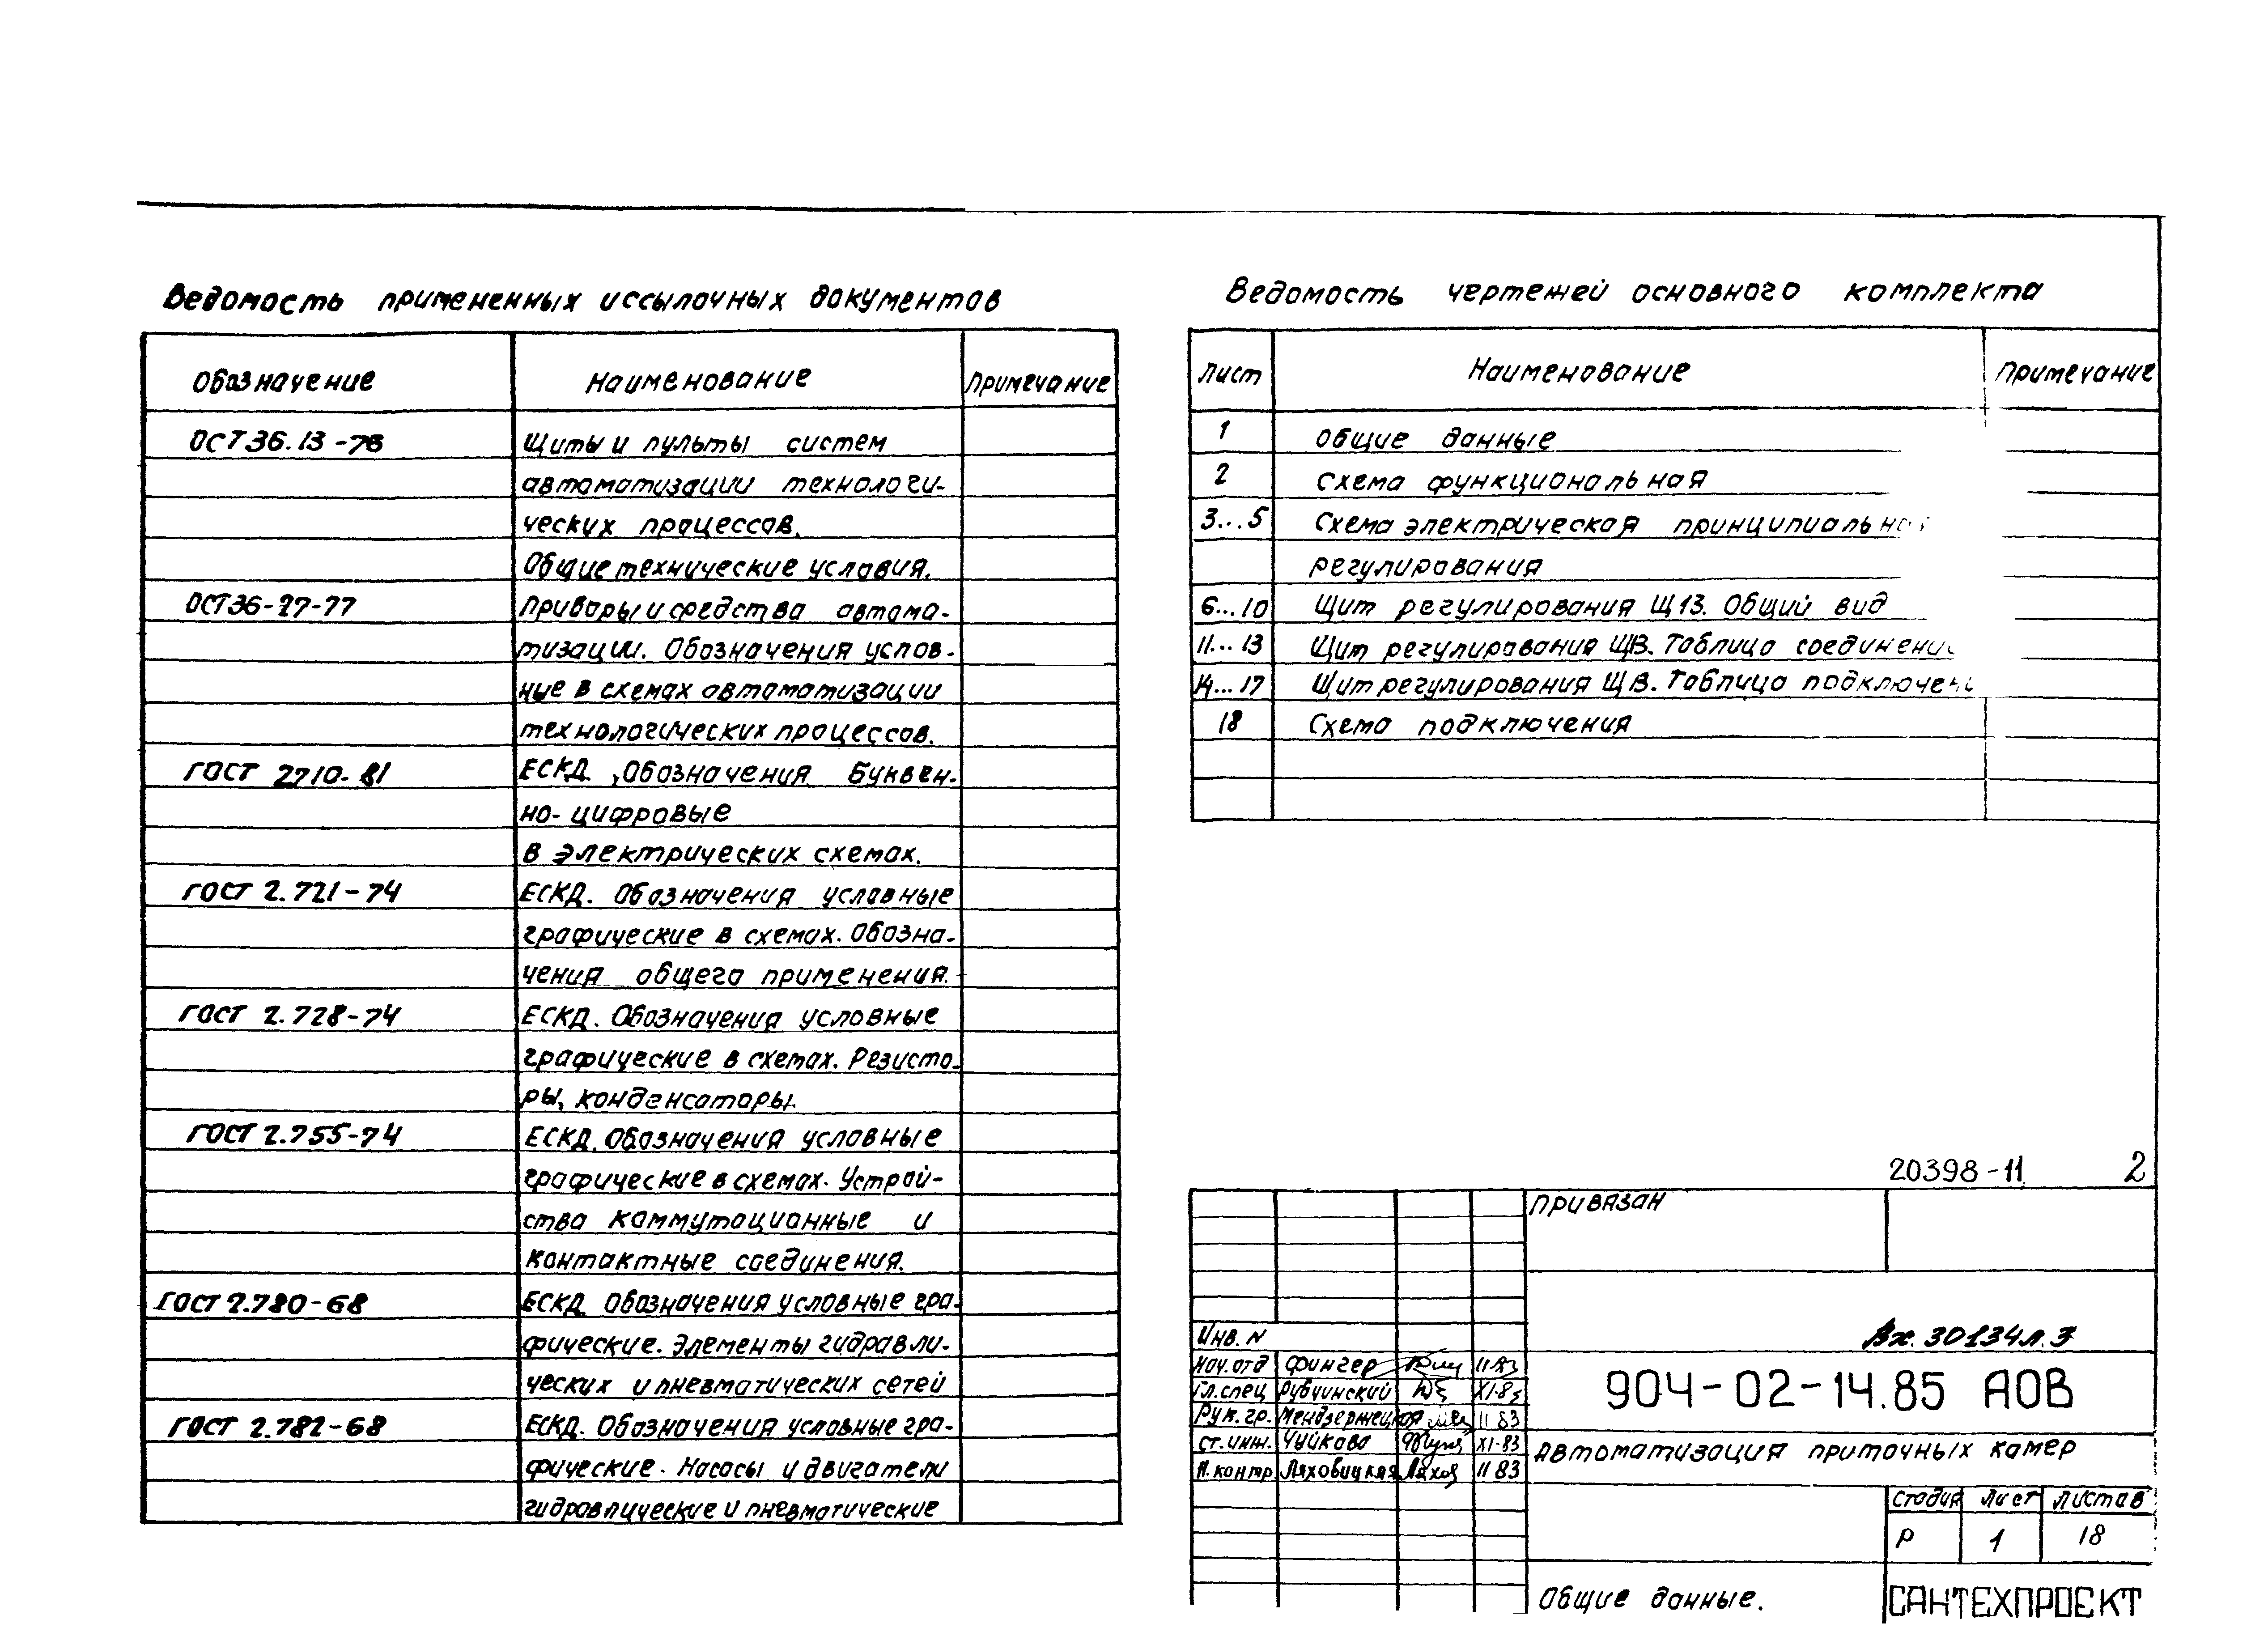 Ведомость примененных и ссылочных документов
Обозначение Наименование Примечание
ОСТ 36.13-76 Щиты и пульты систем
автоматизации технологи-
ческих процессов.
Общие технические условия.
ОСТ 36-27-77 Приборы и средства автома-
тизации. Обозначения услов-
ные в схемах автоматизации
технологических процессов.
ГОСТ 2710-81 ЕСКД. Обозначения Буквен-
но-цифровые
в электрических схемах.
ГОСТ 2.721-74 ЕСКД. Обозначения условные
графические в схемах. Обозна-
чения общего применения.
ГОСТ 2.728-74 ЕСКД. Обозначения условные
графические в схемах. Резисто-
ры, конденсаторы.
ГОСТ 2.755-74 ЕСКД. Обозначения условные
графические в схемах. Устрой-
ства коммутационные и
контактные соединения.
ГОСТ 2.780-68 ЕСКД Обозначения условные гра-
фические. Элементы гидравли-
ческих и пневматических сетей
ГОСТ 2.782-68 ЕСКД. Обозначения условные гра-
фические. Насосы и двигатели
гидравлические и пневматические
Ведомость чертежей основного комплекта
Лист Наименование Примечание
1 Общие данные
2 Схема функциональная
3...5 Схема электрическая принципиальная
регулирования
6...10 Щит регулирования Щ13. Общий вид
11...13 Щит регулирования Щ13. Таблица соединени
14...17 Щит регулирования Щ13. Таблица подключен
18 Схема подключения
20398-11 2
Привязан
Инв. N
Вх. 30134л.
Нач. отд Фингер 11.83
Гл. спец Рубчинский XI-83
Рук. гр. Мендзержецкая 11 83
ст. инж. Чуйкова XI-83
Н. контр. Ляховицкая Ляхов 11 83
904-02-14.85 АОВ
Автоматизация приточных камер
Стадия Лист Листов
Р 1 18
Общие данные.
САНТЕХПРОЕКТ